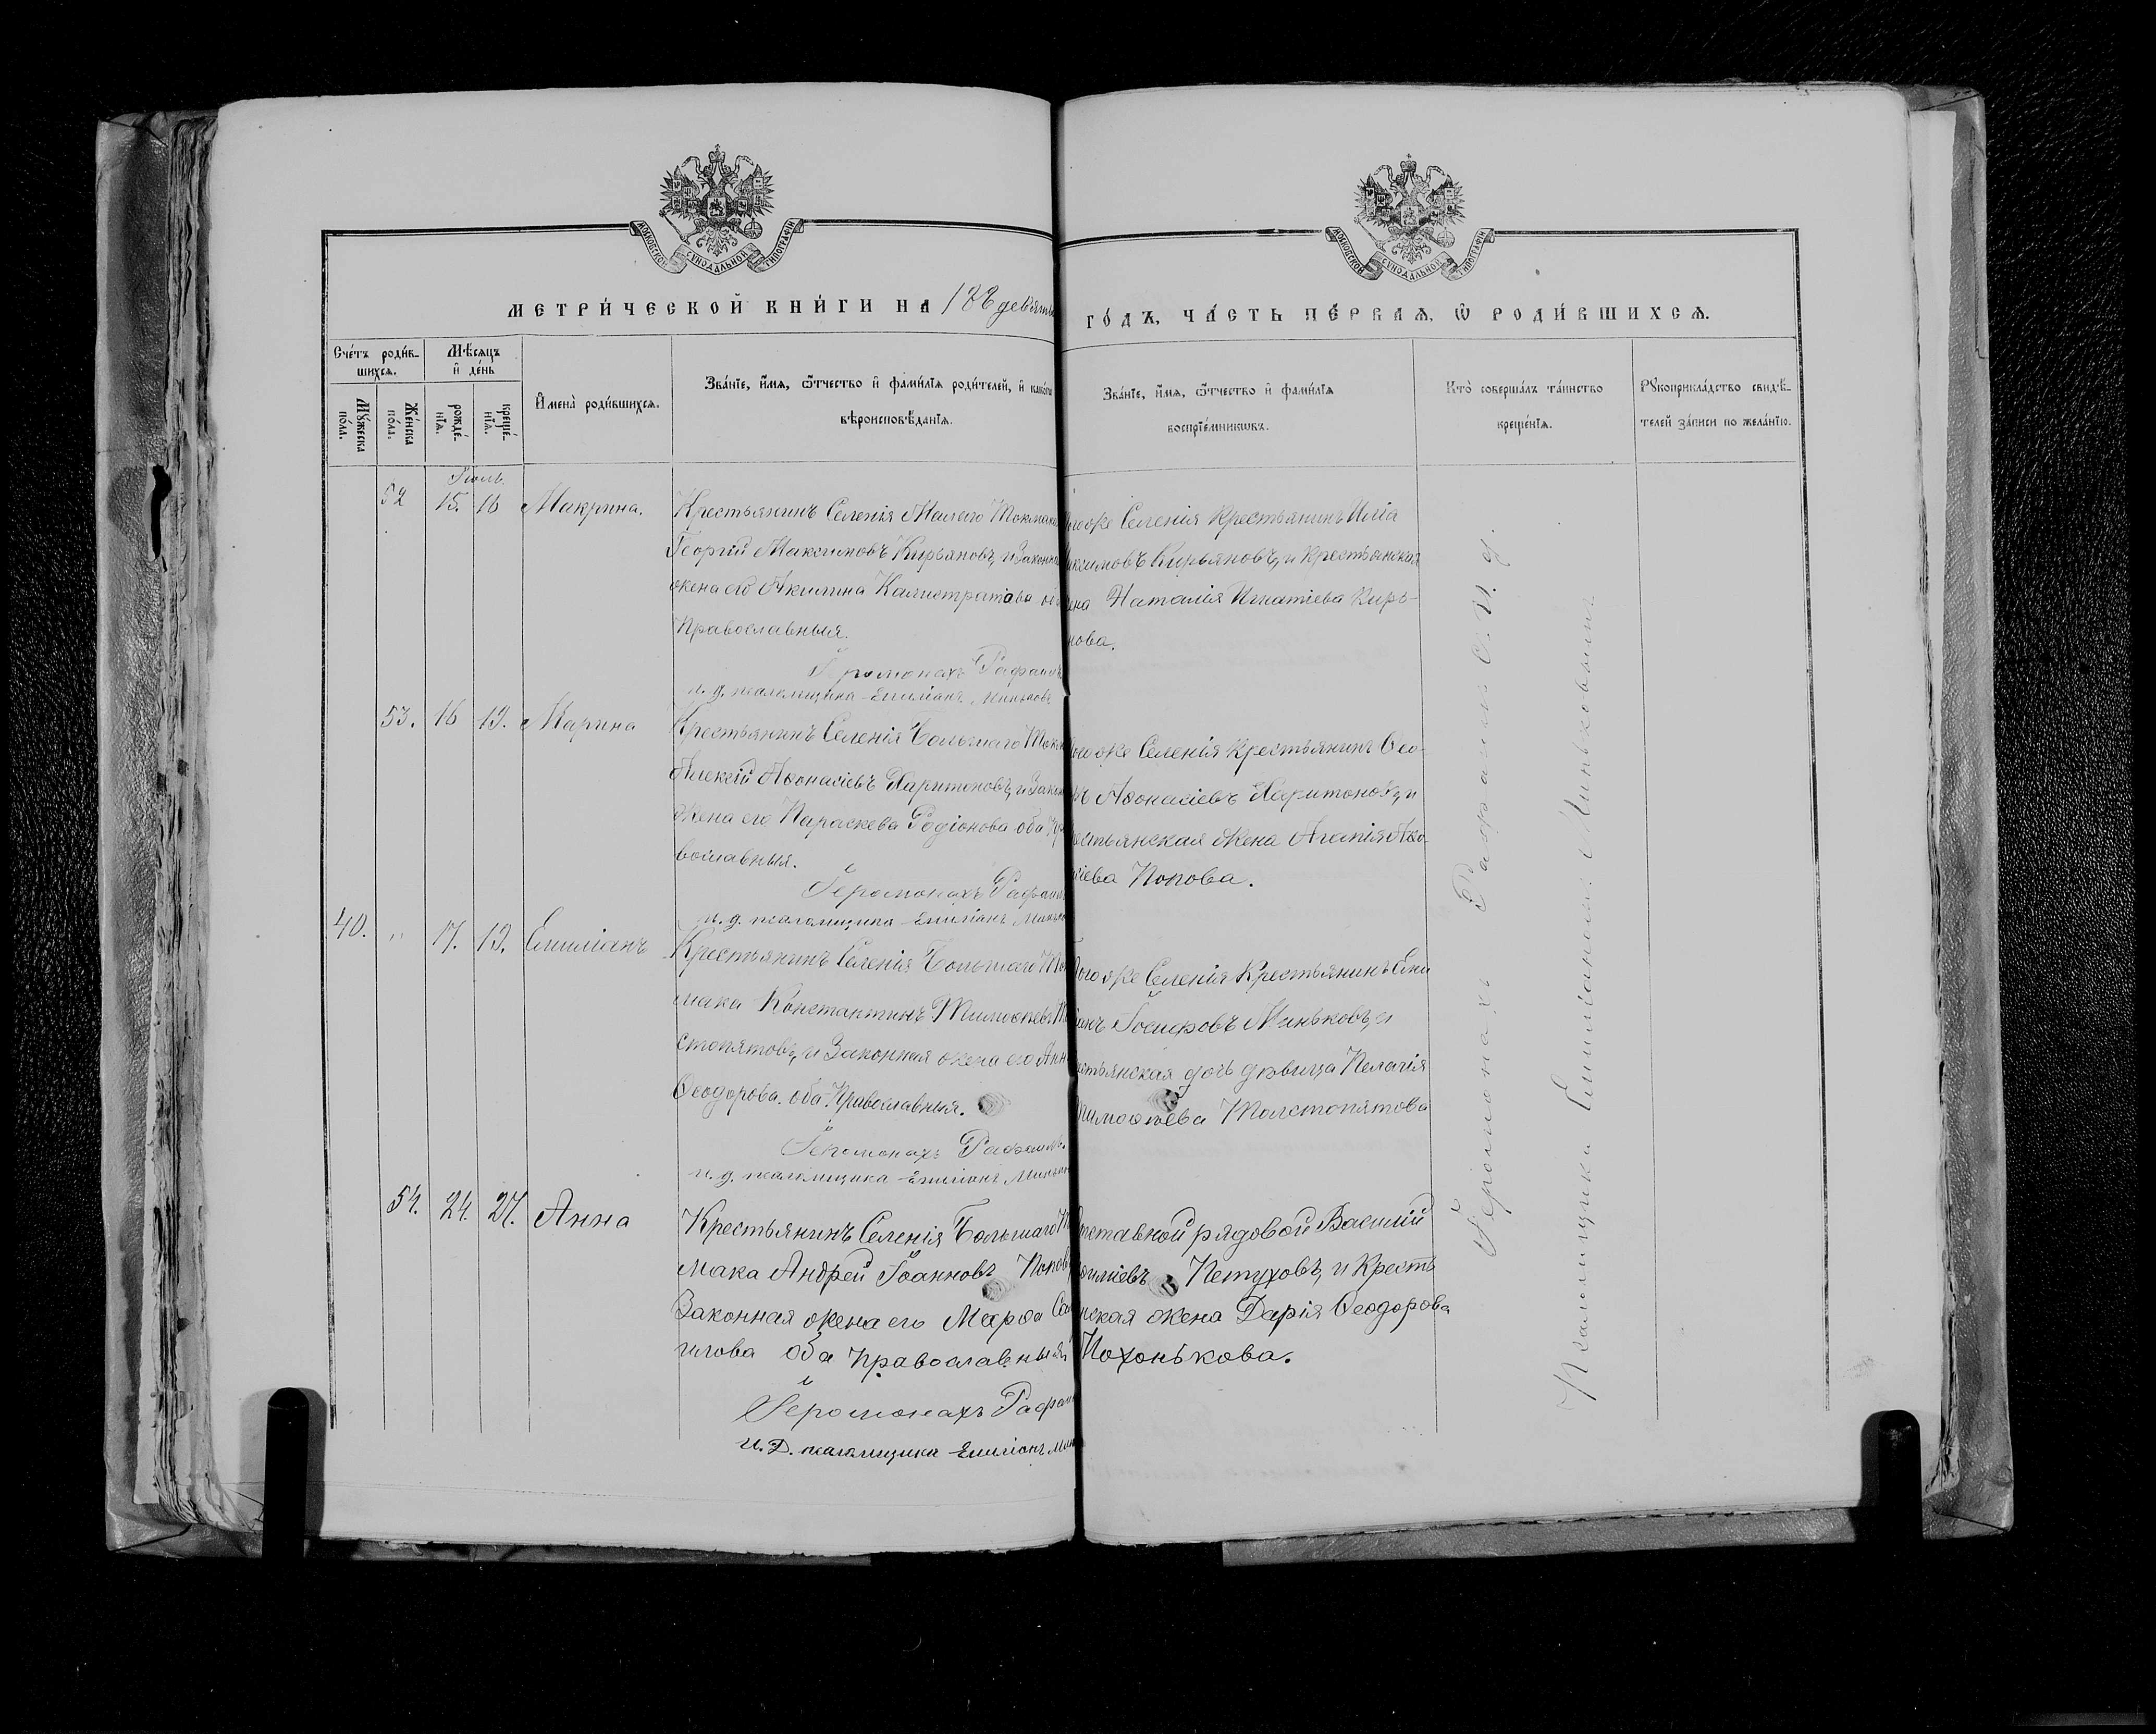 МОСКОВСКОЙ СУНОДАЛЬНОЙ ТИПОГРАФІИ
МОСКОВСКОЙ СУНОДАЛЬНОЙ ТИПОГРАФІИ
МЕТРИ́ЧЕСКОЙ КНИ́ГИ НА 188 девять
ГО́ДЪ, ЧА́СТЬ ПЕ́РВАѦ, Ѡ РОДИ́ВШИХСѦ.
Сче́тъ роди́в-
шихсѧ.
Мѣ́сѧцъ
и҆ де́нь
Мꙋ́жеска
по́ла.
Же́нска
по́ла.
рожде́-
нїѧ.
креще́-
нїѧ.
И҆мена̀ роди́вшихсѧ.
Зва́нїе, и҆́мѧ, ѻ҆́тчество и҆ фами́лїѧ роди́телей, и҆ како́гѡ
вѣроисповѣ́данїѧ.
Зва́нїе, и҆́мѧ, ѻ҆́тчество и҆ фами́лїѧ
воспрїе́мникѡвъ.
Кто̀ соверша́лъ та́инство
креще́нїѧ.
Рꙋкоприкла́дство свидѣ́-
телей за́писи по жела́нїю.
Іюль.
52 15. 16 Макрина.
Крестьянинъ Селенія Малаго Токмака
Георгій Максимовъ Кирьяновъ, и Законная
жена его Акилина Калистратова
Православныя.
Іеромонахъ Рафаилъ
и. д. псаломщика Емиліанъ Миньковъ
тогоже Селенія Крестьянинъ Илія
ксимовъ Кирьяновъ, и крестьянская
ена Наталія Игнатіева Кирь-
нова.
53. 16 19. Марина
Крестьянинъ Селенія Большаго Ток
Алексій Аѳонасіевъ Харитоновъ, и Закон
жена его Параскева Родіонова оба Пра
вославныя.
Іеромонахъ Рафаилъ
и. д. псаломщика Емиліанъ Минько
тогоже Селенія Крестьянинъ Ѳео-
ъ Аѳонасіевъ Харитоновъ, и
естьянская жена Агапія Аѳо-
сіева Попова.
40. " 17. 19. Емиліанъ
Крестьянинъ Селенія Большаго Ток
мака Константинъ Тимоѳеевъ То
стопятовъ, и Законная жена его Анна
Ѳеодорова. оба Православныя.
Іеромонахъ Рафаилъ.
и. д. псаломщика Емиліанъ Минько
Тогоже Селенія Крестьянинъ Еми
іанъ Іосифовъ Миньковъ, и
естьянская дочь дѣвица Пелагія
Тимоѳеева Толстопятова
54. 24. 27. Анна
Крестьянинъ Селенія Большаго То
мака Андрей Іоанновъ Поповъ
Законная жена его Марѳа Са
илова оба Православныя.
Іеромонахъ Рафаи
И. Д. псаломщика Емиліанъ Мин
тставной рядовой Василій
силіевъ Петуховъ, и Кресть
нская жена Дарія Ѳеодорова
Похонькова.
Іеромонахъ Рафаилъ С. И. д.
Псаломщика Емиліаномъ Миньковымъ